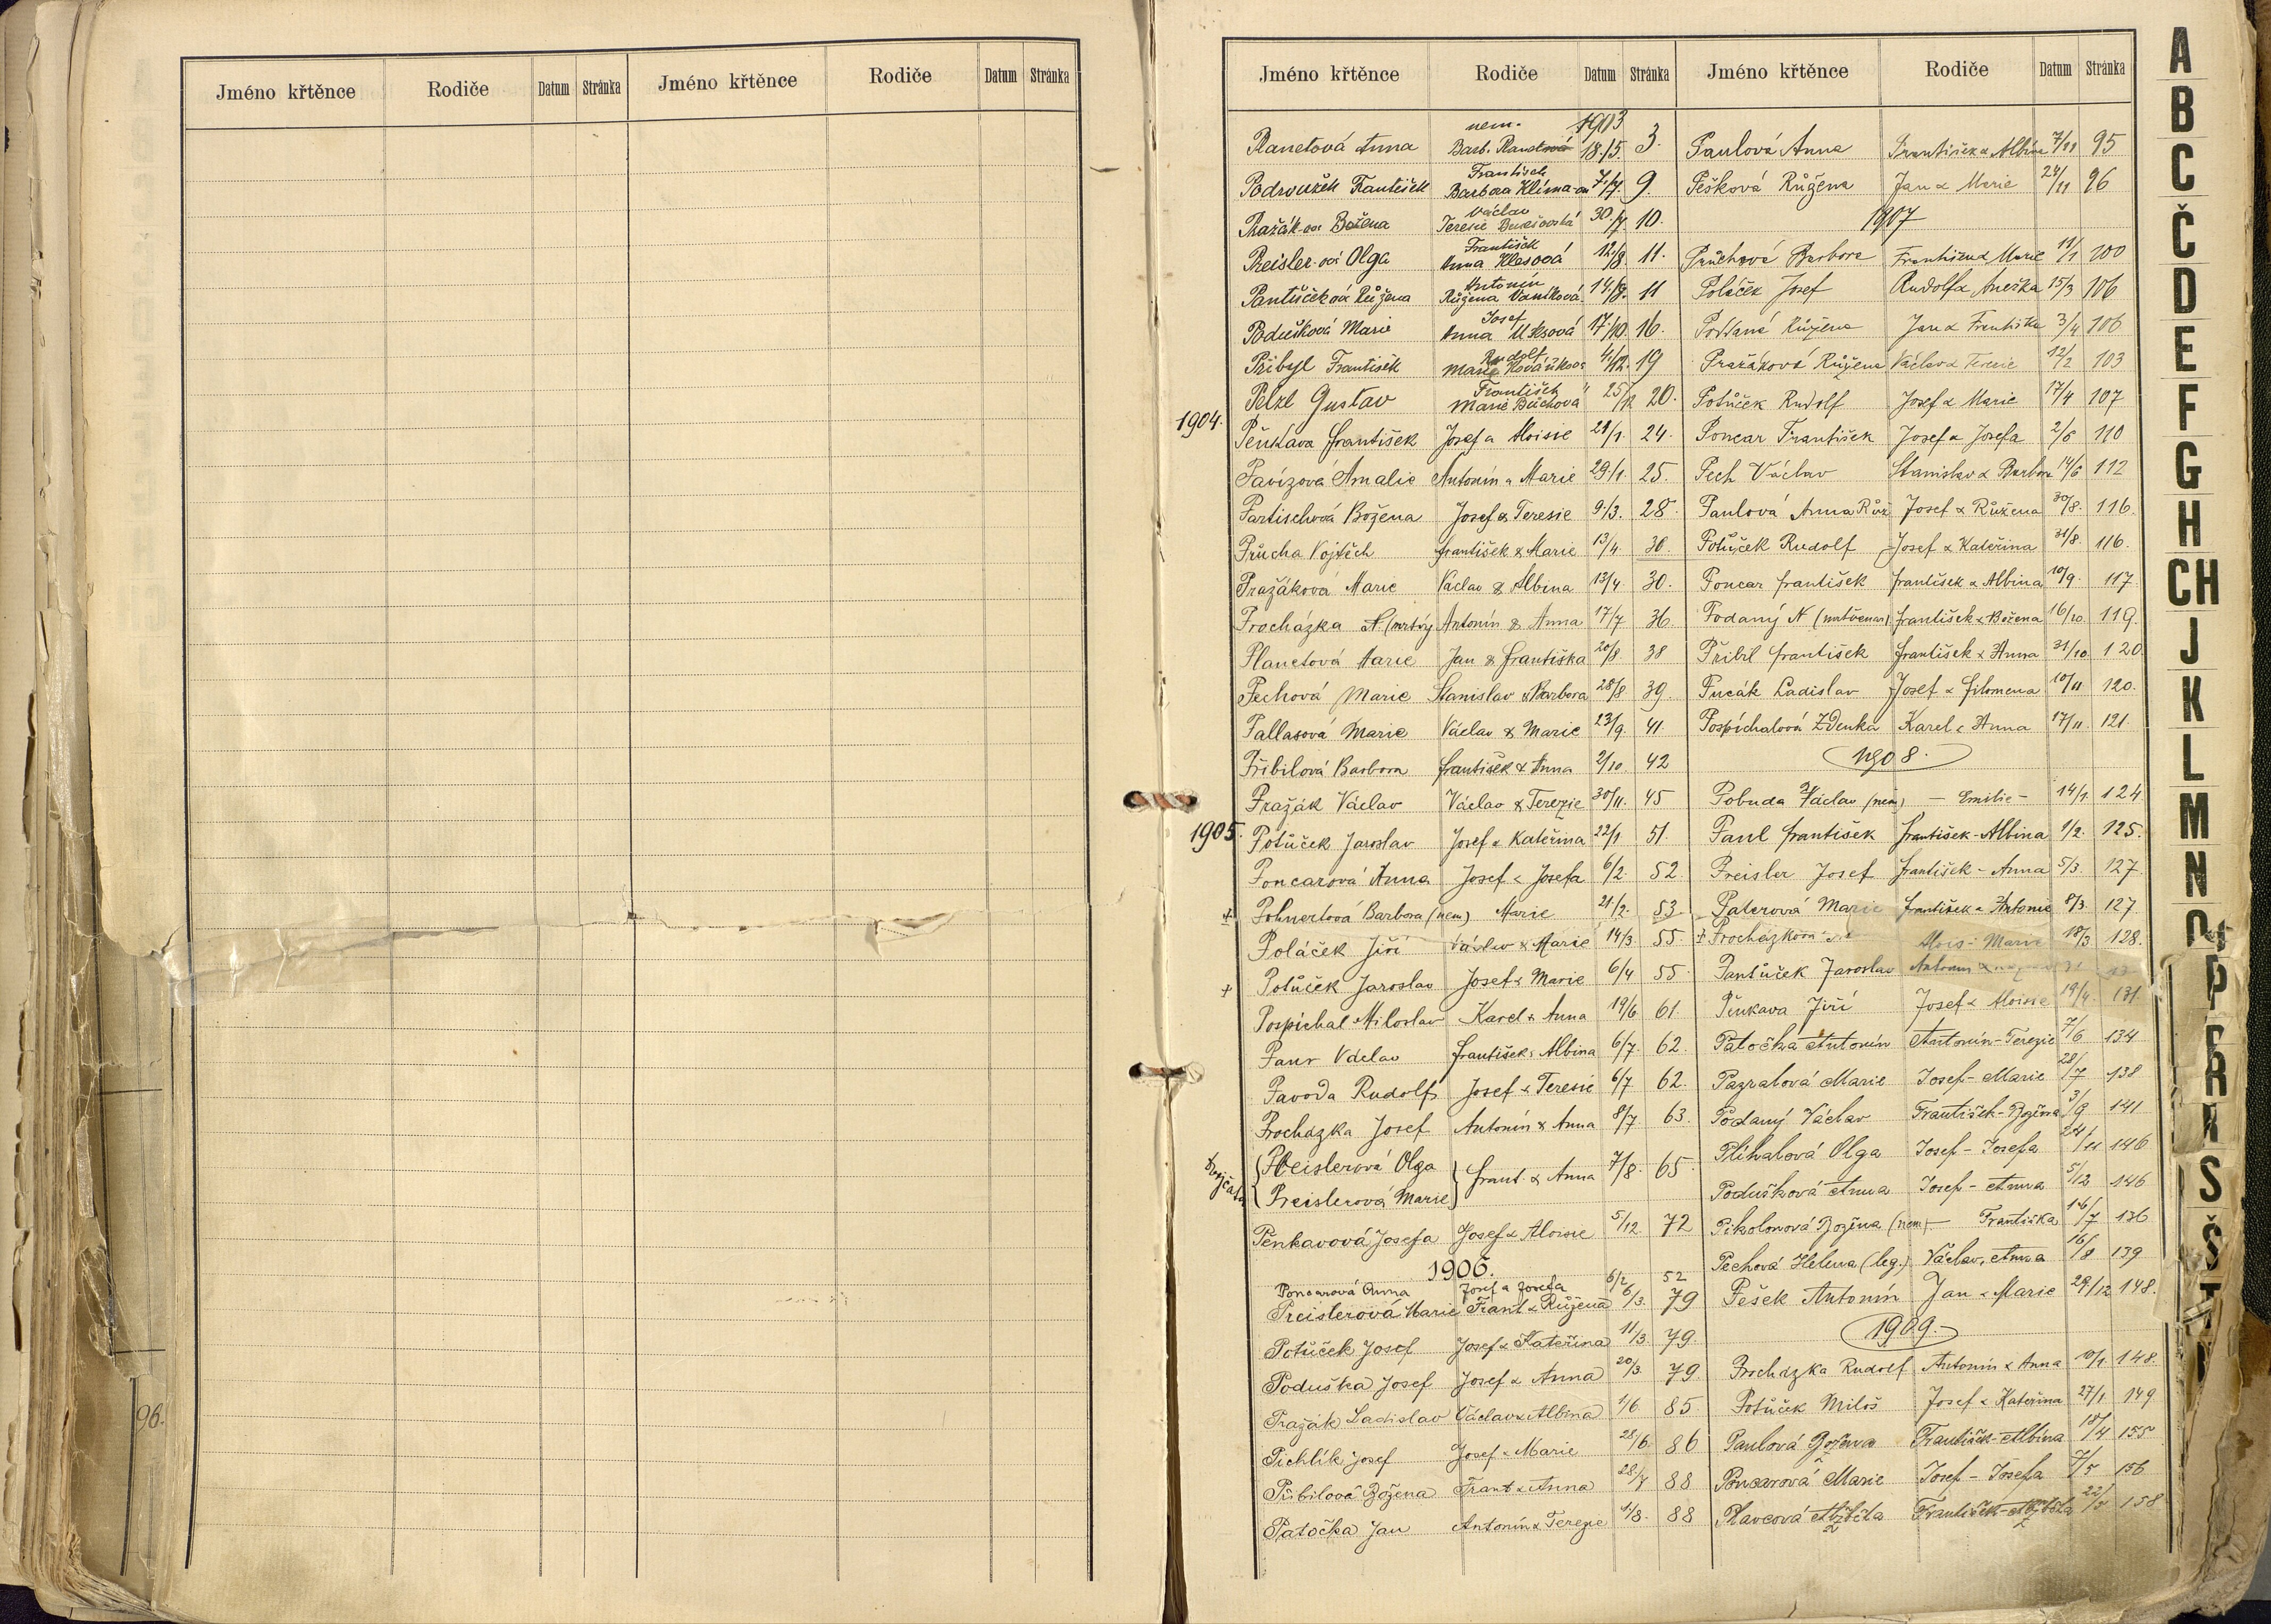 Jméno křtěnce Rodiče Datum Stránka Jméno křtěnce Rodiče Datum Stránka
96.
Jméno křtěnce Rodiče Datum Stránka
nem. 1903
Planetová Anna Barb. Planetová 18./5. 3.
František
Podroužek František Barbora 7./7. 9.
Václav
Pražák-ová Božena Teresie 30./7. 10.
František
Preisler-ová Olga Anna Klesová 12./8. 11.
Antonín
Pantůčková Růžena Růžena Vaníková 14./8. 11
Josef
Podušková Marie Anna 17./10. 16.
Rudolf
Přibyl František Marie 4./12. 19
František
Pelzl Gustav Marie 25/12 20.
1904.
Pěnkava František Josef a Aloisie 21/1. 24.
Pavízová Amalie Antonín a Marie 29/1. 25.
Partischová Božena Josef & Teresie 9./3. 28
Průcha Vojtěch František & Marie 13/4. 30.
Pražáková Marie Václav & Albina 13/4. 30.
Procházka N. (mrtvý Antonín & Anna 17/7 36.
Planetová Marie Jan & Františka 20/8 38
Pechová Marie Stanislav & Barbora 28/8 39.
Pallasová Marie Václav & Marie 23/9. 41.
Přibilová Barbora František & Anna 2/10. 42
Pražák Václav Václav & Terezie 30/11. 45
1905.
Potůček Jaroslav Josef a Kateřina 22/1 51.
Poncarová Anna Josef & Josefa 6/2. 52.
+ Pohnertová Barbora (nem) Marie 21/2. 53
Poláček Jiří Václav & Marie 14/3 55.
+ Potůček Jaroslav Josef & Marie 6/4 55.
Pospíchal Miloslav Karel & Anna 19/6 61.
Paur Václav František & Albina 6/7. 62.
Pavoda Rudolf Josef & Teresie 6/7 62.
Procházka Josef Antonín & Anna 8/7. 63.
dvojčata
Preislerová Olga
Preislerová Marie
Frant. & Anna 7/8. 65.
Penkavová Josefa Josef & Aloisie 5/12. 72
1906.
Poncarová Anna Josef a Josefa 6/2 52
Preislerová Marie Frant & Růžena 6/3. 79
Potůček Josef Josef & Kateřina 11/3. 79.
Poduška Josef Josef & Anna 20/3. 79
Pražák Ladislav Václav & Albina 1/6. 85.
Pichlík Josef Josef & Marie 28/6. 86
Přibilová Božena Frant & Anna 28/7 88
Patočka Jan Antonín & Terezie 1/8. 88
Jméno křtěnce Rodiče Datum Stránka
Paulová Anna František & Albina 7/11 95
Pešková Růžena Jan & Marie 24/11 96
1907
Průchová Barbora František & Marie 11/1 100
Poláček Josef Rudolf & Anežka 15/3 106
Podaná Růžena Jan & Františka 3/4 106
Pražáková Růžena Václav & Terezie 12/2 103
Potůček Rudolf Josef & Marie 17/4 107
Poncar František Josef & Josefa 2/6 110
Pech Václav Stanislav & Barbora 14/6 112
Paulová Anna Růž Josef & Růžena 30/8. 116.
Potůček Rudolf Josef & Kateřina 31/8. 116.
Poncar František František & Albina 10/9. 117.
Podaný N (mrtvěnar) František & Božena 16/10. 119.
Přibil František František & Anna 31/10. 120.
Pucák Ladislav Josef & Filomena 10/11 120.
Pospíchalová Zdenka Karel & Anna 17/11. 121.
1908.
Pobuda Václav (nem) — Emilie — 14/1. 124
Paul František František - Albina 1/2. 125.
Preisler Josef František - Anna 5/3. 127.
Paterová Marie František a Antonie 8/3. 127
+ Procházková Alois - Marie 18/3 128.
Pantůček Jaroslav Antonín
Pěnkava Jiří Josef & Aloisie 19/4. 131.
Patočka Antonín Antonín - Terezie 7/6 134
Pazralová Marie Josef - Marie 28/7 138
Podaný Václav František - Božena 3/9 141
Plíhalová Olga Josef - Josefa 24/11 146
Podušková Anna Josef - Anna 5/12 146
Pikolonová Božena (nem) — Františka 14/7 136
Pechová Helena (leg.) Václav, Anna 16/8 139
Pešek Antonín Jan & Marie 29/12 148.
1909.
Procházka Rudolf Antonín & Anna 10/1 148.
Potůček Miloš Josef & Kateřina 27/1 149
Paulová Božena František - Albina 18/4 155
Poncarová Marie Josef - Josefa 7/5 156
Plavcová Alžběta František - Alžběta 22/5 158
A
B
C
Č
D
E
F
G
H
CH
J
K
L
M
N
O
P
R
Ř
S
Š
T